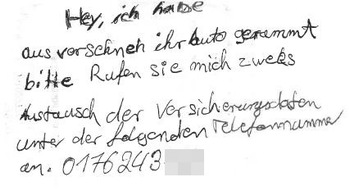 Hey, ich habe
aus verschneh ihr Auto gerammt
bitte Rufen sie mich zwecks
Austausch der Versicherungsdaten
unter der folgenden Telefonnummer
an. 0176243